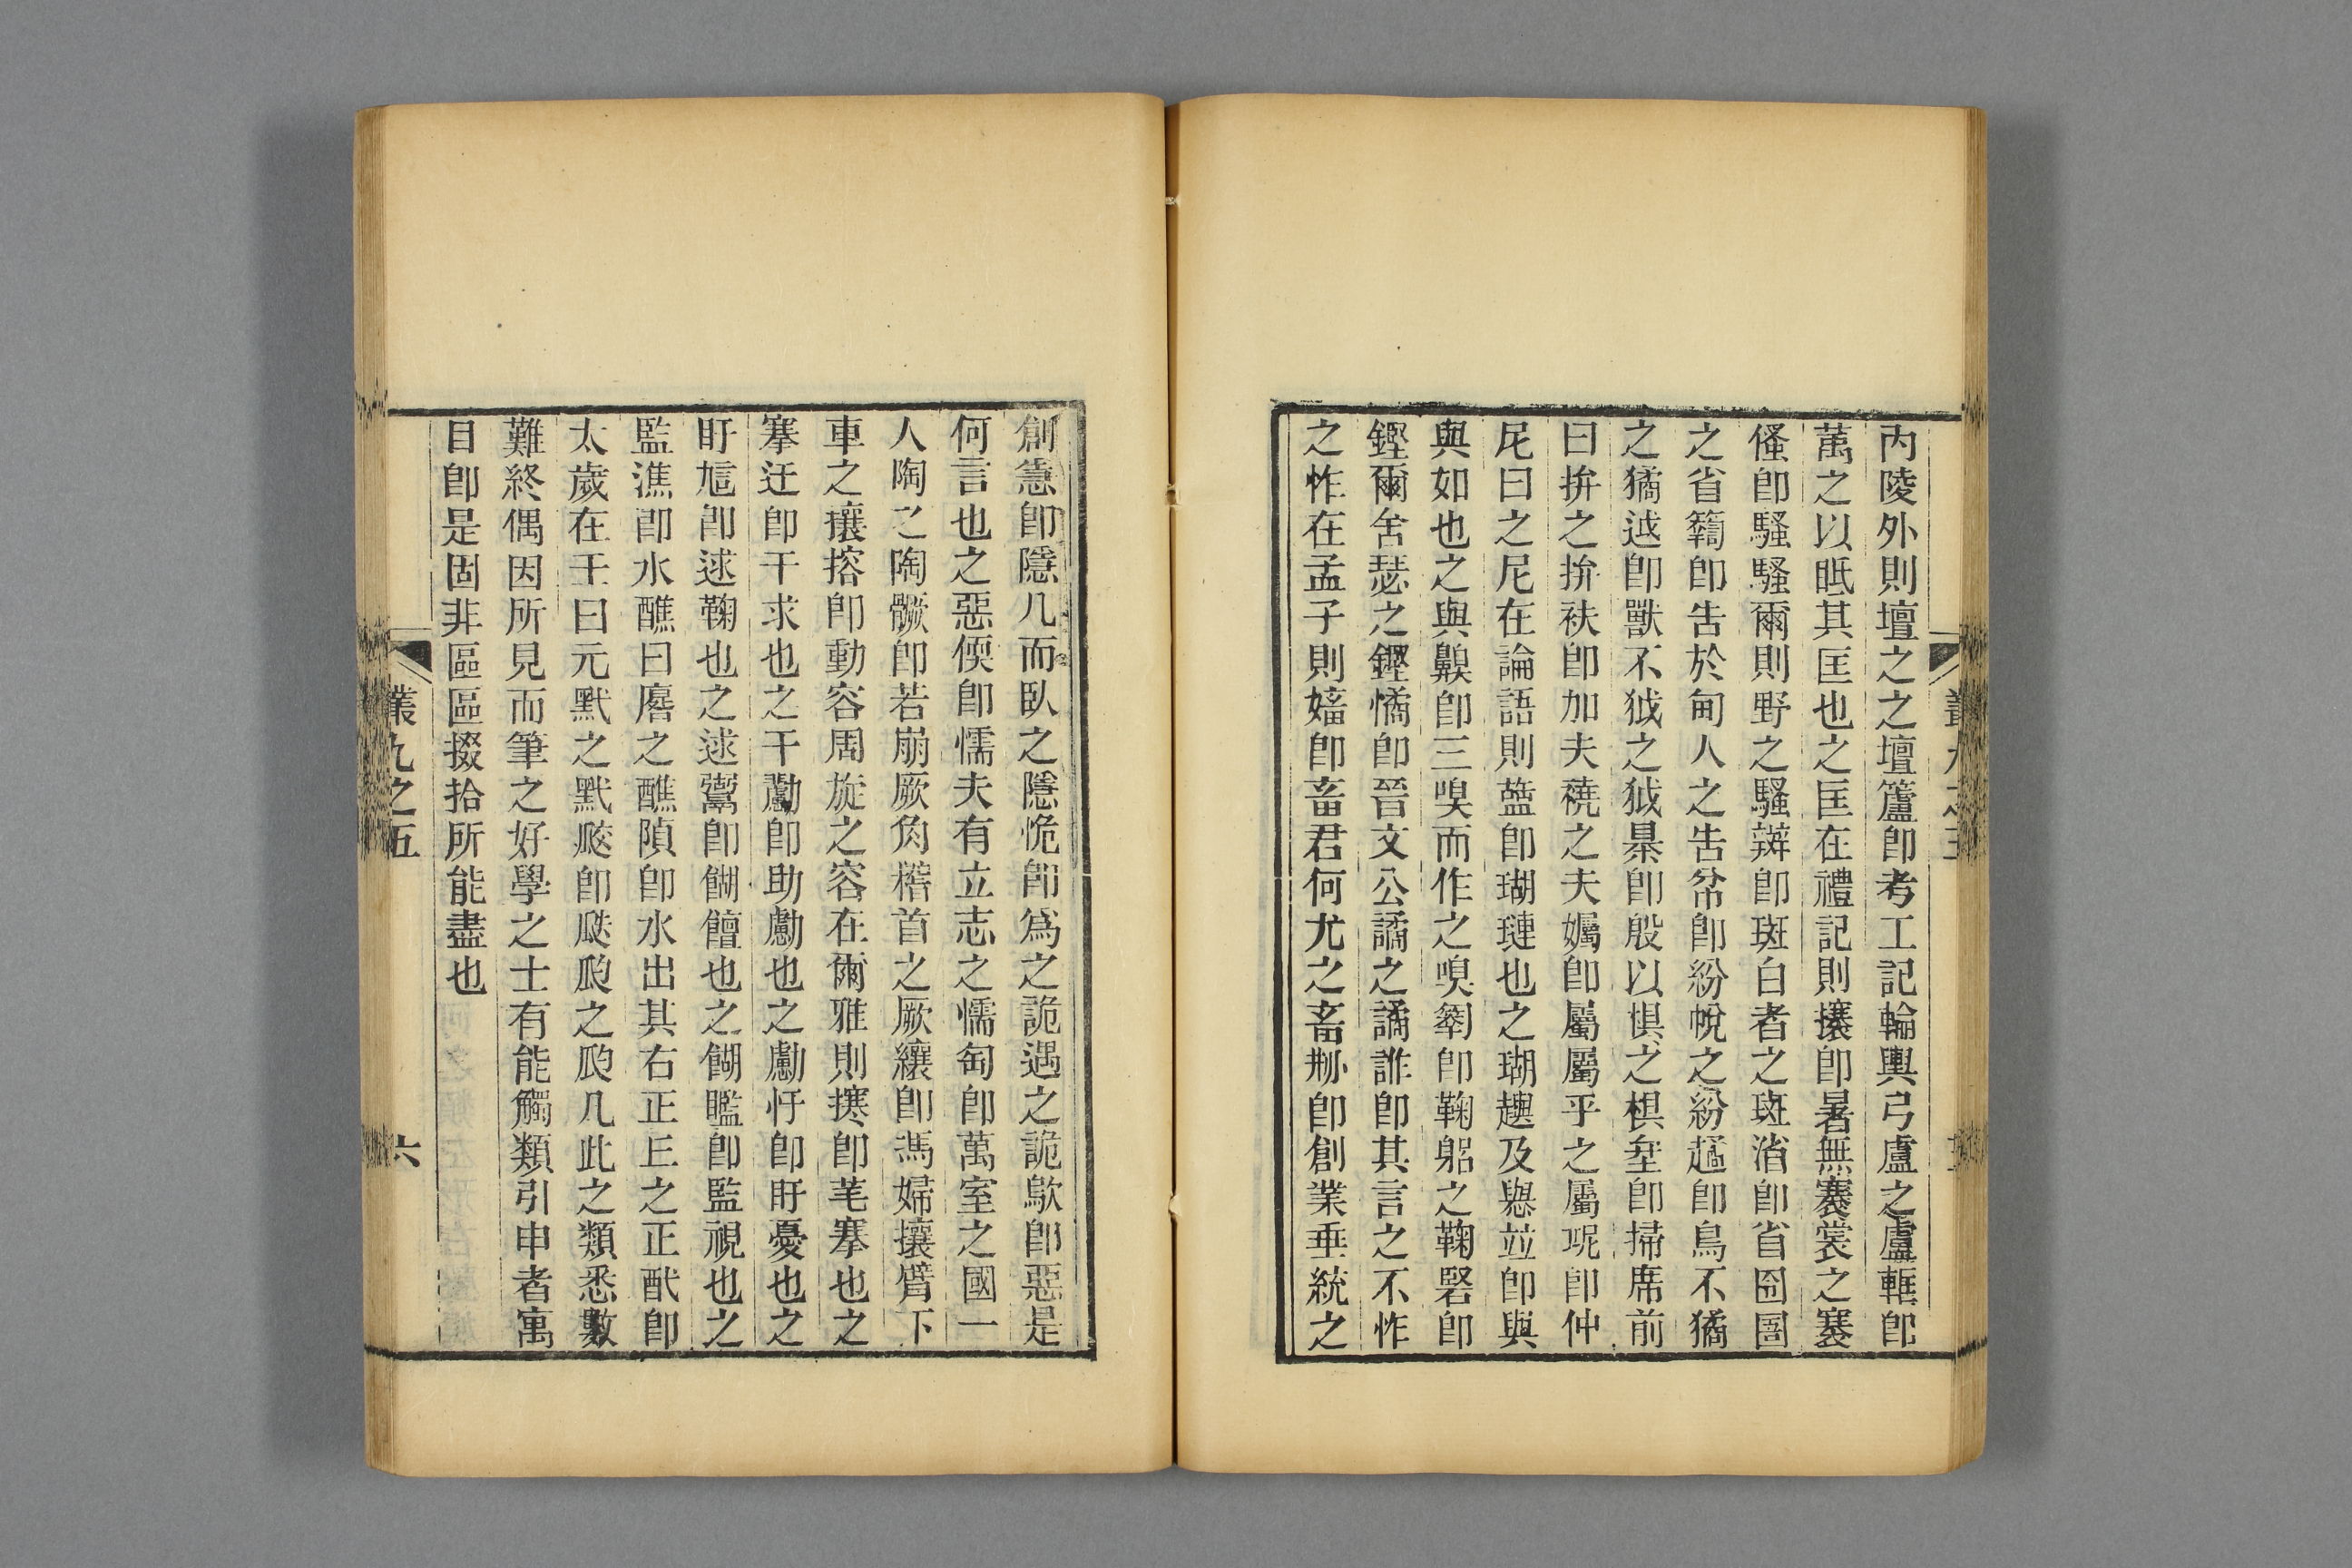 丙陵外則壇之之壇籚卽考工記輪輿弓盧之盧軭卽
萬之以眡其匡也之匡在禮記則攐卽暑無褰裳之褰
慅卽騷騷爾則野之騷辬卽斑白者之斑渻卽省囹圄
之省籱卽告於甸人之告帉卽紛帨之紛趫卽鳥不獝
之獝𨒋卽獸不狘之狘暴卽殷以椇之椇坌卽掃席前
曰拚之拚衭卽加夫襓之夫孎卽屬屬乎之屬卽仲
尼曰之尼在論語則卽瑚璉也之瑚趩及懇並卽與
與如也之與齅卽三嗅而作之嗅匑卽鞠躳之鞠硻卽
鏗爾舍瑟之鏗憰卽晉文公譎之譎詐卽其言之不怍
之怍在孟子則嬸卽畜君何尤之畜刱卽創業垂統之
創㥯卽隱几而臥之隱恑卽爲之詭遇之詭歍卽惡是
何言也之惡偄卽懦夫有立志之懦匋卽萬室之國一
人陶之陶𩪗卽若崩厥角𥡴首之厥纕卽馮婦攘臂下
車之攘搈卽動容周旋之容在爾雅則攓卽芼搴也之
搴迀卽干求也之干勴卽助勴也之勴忓卽盱憂也之
盱訄卽逑鞠也之逑鬻卽餬饘也之餬覽卽監視也之
監潐卽水醮曰厬之醮隫卽水出其右正㠪之正酖卽
太歲在壬曰元黓之黓瓞卽瓞瓝之瓝凡此之類悉數
難終偶因所見而筆之好學之士有能觸類引申者寓
目卽是固非區區掇拾所能盡也
叢九之五
六